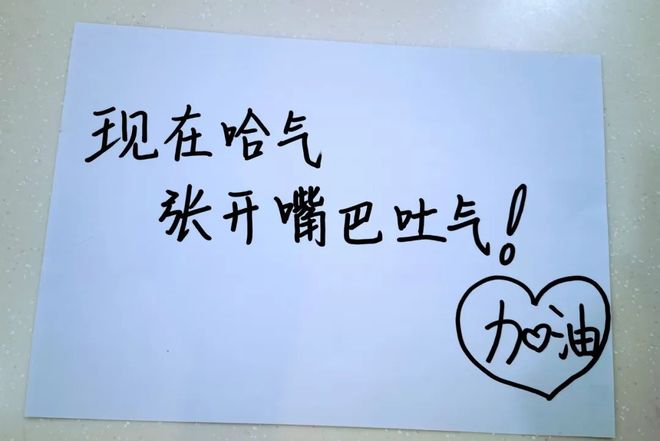 现在哈气
张开嘴巴吐气!
加油